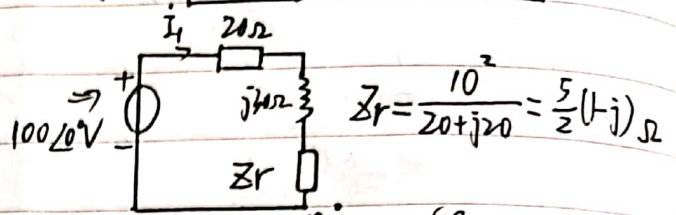 İ₁ 20Ω
+
100∠0°V
−
Zr
Zr = 10² / (20+j20) = 5/2 (1-j) Ω